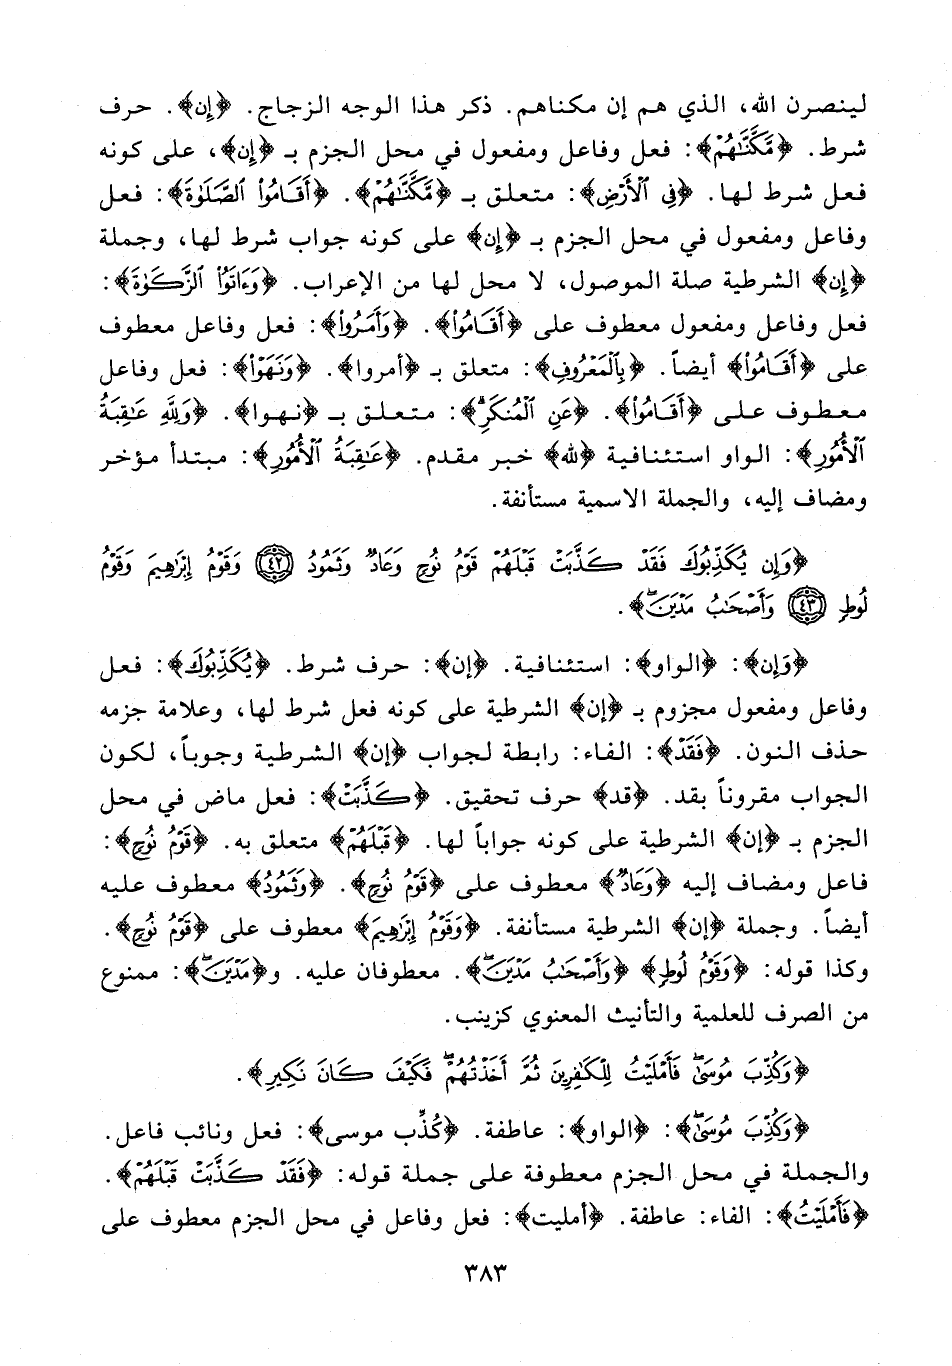 لينصرن الله، الذي هم إن مكناهم. ذكر هذا الوجه الزجاج. ﴿إن﴾. حرف
شرط. ﴿مَّكَّنَّٰهُمْ﴾: فعل وفاعل ومفعول في محل الجزم بـ ﴿إن﴾، على كونه
فعل شرط لها. ﴿فِي ٱلْأَرْضِ﴾: متعلق بـ ﴿مَّكَّنَّٰهُمْ﴾. ﴿أَقَامُوا۟ ٱلصَّلَوٰةَ﴾: فعل
وفاعل ومفعول في محل الجزم بـ ﴿إن﴾ على كونه جواب شرط لها، وجملة
﴿إن﴾ الشرطية صلة الموصول، لا محل لها من الإعراب. ﴿وَءَاتَوُا۟ ٱلزَّكَوٰةَ﴾:
فعل وفاعل ومفعول معطوف على ﴿أَقَامُوا۟﴾. ﴿وَأَمَرُوا۟﴾: فعل وفاعل معطوف
على ﴿أَقَامُوا۟﴾ أيضاً. ﴿بِٱلْمَعْرُوفِ﴾: متعلق بـ ﴿أمروا﴾. ﴿وَنَهَوْا۟﴾: فعل وفاعل
معطوف على ﴿أَقَامُوا۟﴾. ﴿عَنِ ٱلْمُنكَرِ ۗ﴾: متعلق بـ ﴿نهوا﴾. ﴿وَلِلَّهِ عَٰقِبَةُ
ٱلْأُمُورِ﴾: الواو استئنافية ﴿لله﴾ خبر مقدم. ﴿عَٰقِبَةُ ٱلْأُمُورِ﴾: مبتدأ مؤخر
ومضاف إليه، والجملة الاسمية مستأنفة.
﴿وَإِن يُكَذِّبُوكَ فَقَدْ كَذَّبَتْ قَبْلَهُمْ قَوْمُ نُوحٍ وَعَادٌ وَثَمُودُ ٤٢ وَقَوْمُ إِبْرَٰهِيمَ وَقَوْمُ
لُوطٍ ٤٣ وَأَصْحَٰبُ مَدْيَنَ ۖ﴾.
﴿وَإِن﴾: ﴿الواو﴾: استئنافية. ﴿إن﴾: حرف شرط. ﴿يُكَذِّبُوكَ﴾: فعل
وفاعل ومفعول مجزوم بـ ﴿إن﴾ الشرطية على كونه فعل شرط لها، وعلامة جزمه
حذف النون. ﴿فَقَدْ﴾: الفاء: رابطة لجواب ﴿إن﴾ الشرطية وجوباً، لكون
الجواب مقروناً بقد. ﴿قد﴾ حرف تحقيق. ﴿كَذَّبَتْ﴾: فعل ماض في محل
الجزم بـ ﴿إن﴾ الشرطية على كونه جواباً لها. ﴿قَبْلَهُمْ﴾ متعلق به. ﴿قَوْمُ نُوحٍ﴾:
فاعل ومضاف إليه ﴿وَعَادٌ﴾ معطوف على ﴿قَوْمُ نُوحٍ﴾. ﴿وَثَمُودُ﴾ معطوف عليه
أيضاً. وجملة ﴿إن﴾ الشرطية مستأنفة. ﴿وَقَوْمُ إِبْرَٰهِيمَ﴾ معطوف على ﴿قَوْمُ نُوحٍ﴾.
وكذا قوله: ﴿وَقَوْمُ لُوطٍ﴾ ﴿وَأَصْحَٰبُ مَدْيَنَ ۖ﴾. معطوفان عليه. و﴿مَدْيَنَ ۖ﴾: ممنوع
من الصرف للعلمية والتأنيث المعنوي كزينب.
﴿وَكُذِّبَ مُوسَىٰ ۖ فَأَمْلَيْتُ لِلْكَٰفِرِينَ ثُمَّ أَخَذْتُهُمْ ۖ فَكَيْفَ كَانَ نَكِيرِ﴾.
﴿وَكُذِّبَ مُوسَىٰ ۖ﴾: ﴿الواو﴾: عاطفة. ﴿كُذِّب موسى﴾: فعل ونائب فاعل.
والجملة في محل الجزم معطوفة على جملة قوله: ﴿فَقَدْ كَذَّبَتْ قَبْلَهُمْ﴾.
﴿فَأَمْلَيْتُ﴾: الفاء: عاطفة. ﴿أمليت﴾: فعل وفاعل في محل الجزم معطوف على
٣٨٣